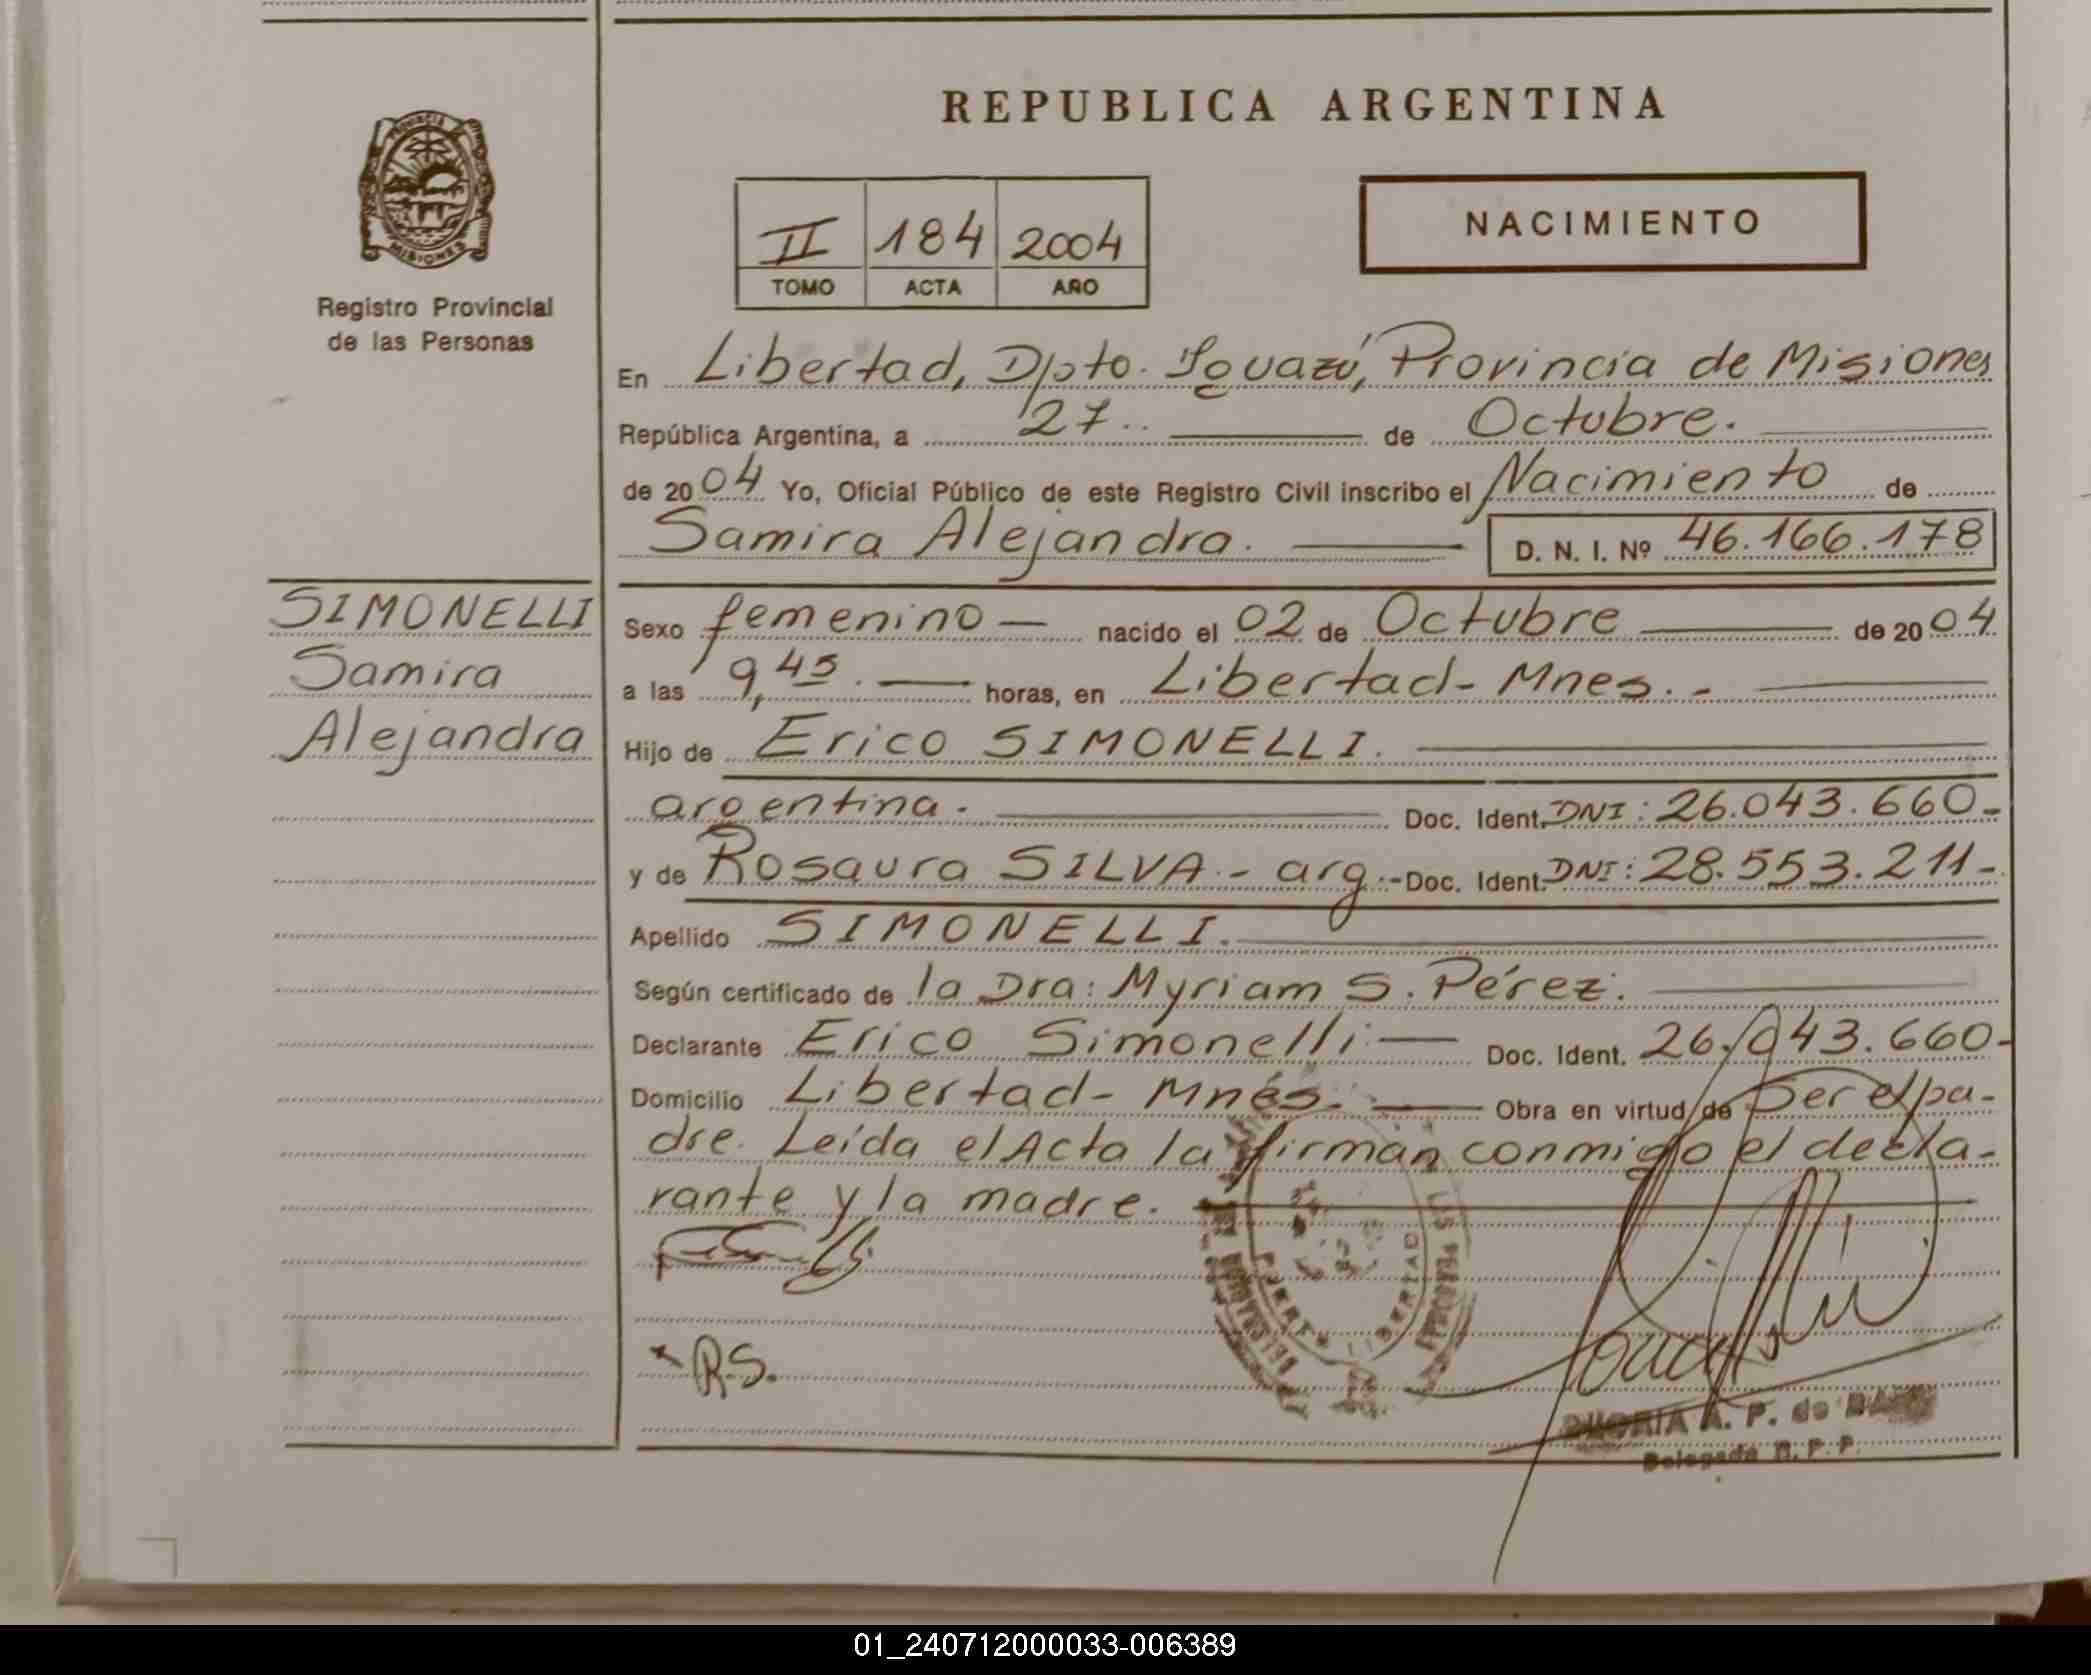 REPUBLICA ARGENTINA
PROVINCIA
MISIONES
Registro Provincial
de las Personas
II 184 2004
TOMO ACTA AÑO
NACIMIENTO
En Libertad, Dpto. Iguazú, Provincia de Misiones
República Argentina, a 27 de Octubre.
de 2004 Yo, Oficial Público de este Registro Civil inscribo el Nacimiento de
Samira Alejandra. D. N. I. Nº 46.166.178
SIMONELLI
Samira
Alejandra
Sexo femenino — nacido el 02 de Octubre de 2004
a las 9,45. — horas, en Libertad - Mnes. -
Hijo de Erico SIMONELLI.
argentina. Doc. Ident. DNI: 26.043.660-
y de Rosaura SILVA.- arg.- Doc. Ident. DNI: 28.553.211-
Apellido SIMONELLI.
Según certificado de la Dra: Myriam S. Pérez.
Declarante Erico Simonelli — Doc. Ident. 26.043.660-
Domicilio Libertad - Mnes. — Obra en virtud de Ser el pa-
dre. Leída el Acta la firman conmigo el decla-
rante y la madre.
R.S.
LIBERTAD
A. P. de
Delegada R. P. P.
01_240712000033-006389